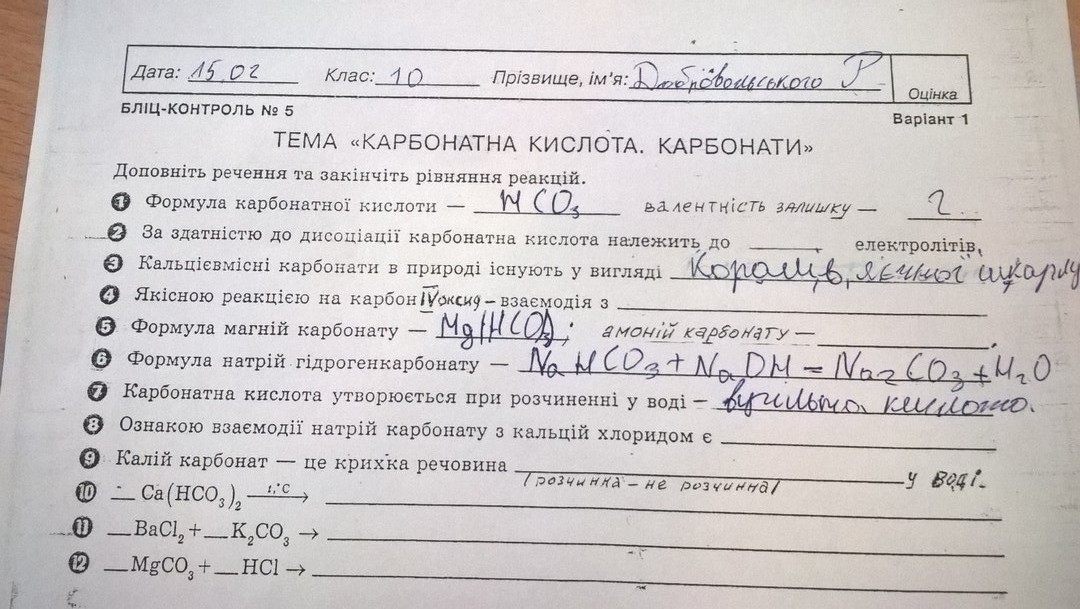 Дата: 15.02 Клас: 10 Прізвище, ім'я: Добровольського Р
Оцінка
БЛІЦ-КОНТРОЛЬ № 5
Варіант 1
ТЕМА «КАРБОНАТНА КИСЛОТА. КАРБОНАТИ»
Доповніть речення та закінчіть рівняння реакцій.
1 Формула карбонатної кислоти — HCO₃ валентність залишку — 2
2 За здатністю до дисоціації карбонатна кислота належить до ______ електролітів.
3 Кальцієвмісні карбонати в природі існують у вигляді Коралів, яєчної шкарлу
4 Якісною реакцією на карбон IV оксид – взаємодія з ______
5 Формула магній карбонату — Mg(HCO₃)₂; амоній карбонату — ______.
6 Формула натрій гідрогенкарбонату — NaHCO₃ + NaOH = Na₂CO₃ + H₂O
7 Карбонатна кислота утворюється при розчиненні у воді – вугільна кислота.
8 Ознакою взаємодії натрій карбонату з кальцій хлоридом є ______
9 Калій карбонат — це крихка речовина ______ у воді.
/розчинна – не розчинна/
10 __ Ca(HCO₃)₂ t,°C → ______
11 __BaCl₂ + __K₂CO₃ → ______
12 __MgCO₃ + __HCl → ______